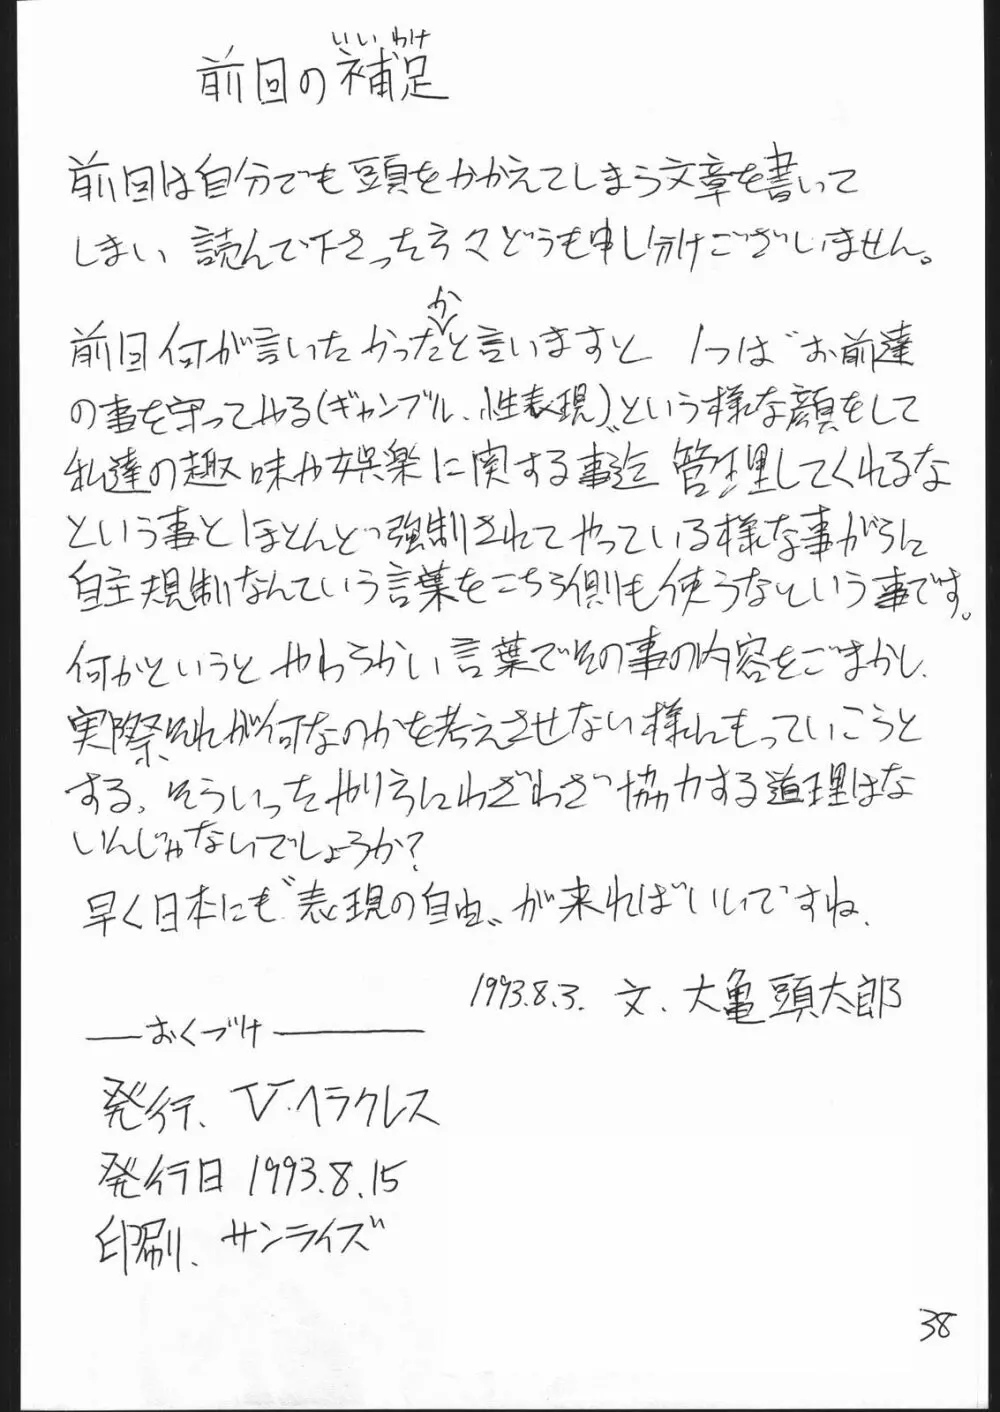 いいわけ
前回の補足
前回は自分でも頭をかかえてしまう文章を書いて
しまい 読んで下さった方々どうも申し分けございません。
か
前回何が言いたかったと言いますと 1つは〝お前達
の事を守ってやる(ギャンブル、性表現)〟という様な顔をして
私達の趣味や娯楽に関する事迄 管理してくれるな
という事と ほとんど強制されてやっている様な事がらに
自主規制なんていう言葉をこちら側も使うなという事です。
何かというと やわらかい言葉でその事の内容をごまかし、
実際、それが何なのかを考えさせない様にもっていこうと
する、そういったやり方にわざわざ協力する道理はな
いんじゃないでしょうか?
早く日本にも〝表現の自由〟が来ればいいですね、
1993.8.3. 文、大亀頭太郎
―おくづけ―――
発行、V・ヘラクレス
発行日 1993.8.15
印刷、サンライズ
38